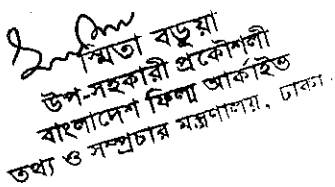 স্মিতা বড়ুয়া
উপ-সহকারী প্রকৌশলী
বাংলাদেশ ফিল্ম আর্কাইভ
তথ্য ও সম্প্রচার মন্ত্রণালয়, ঢাকা।